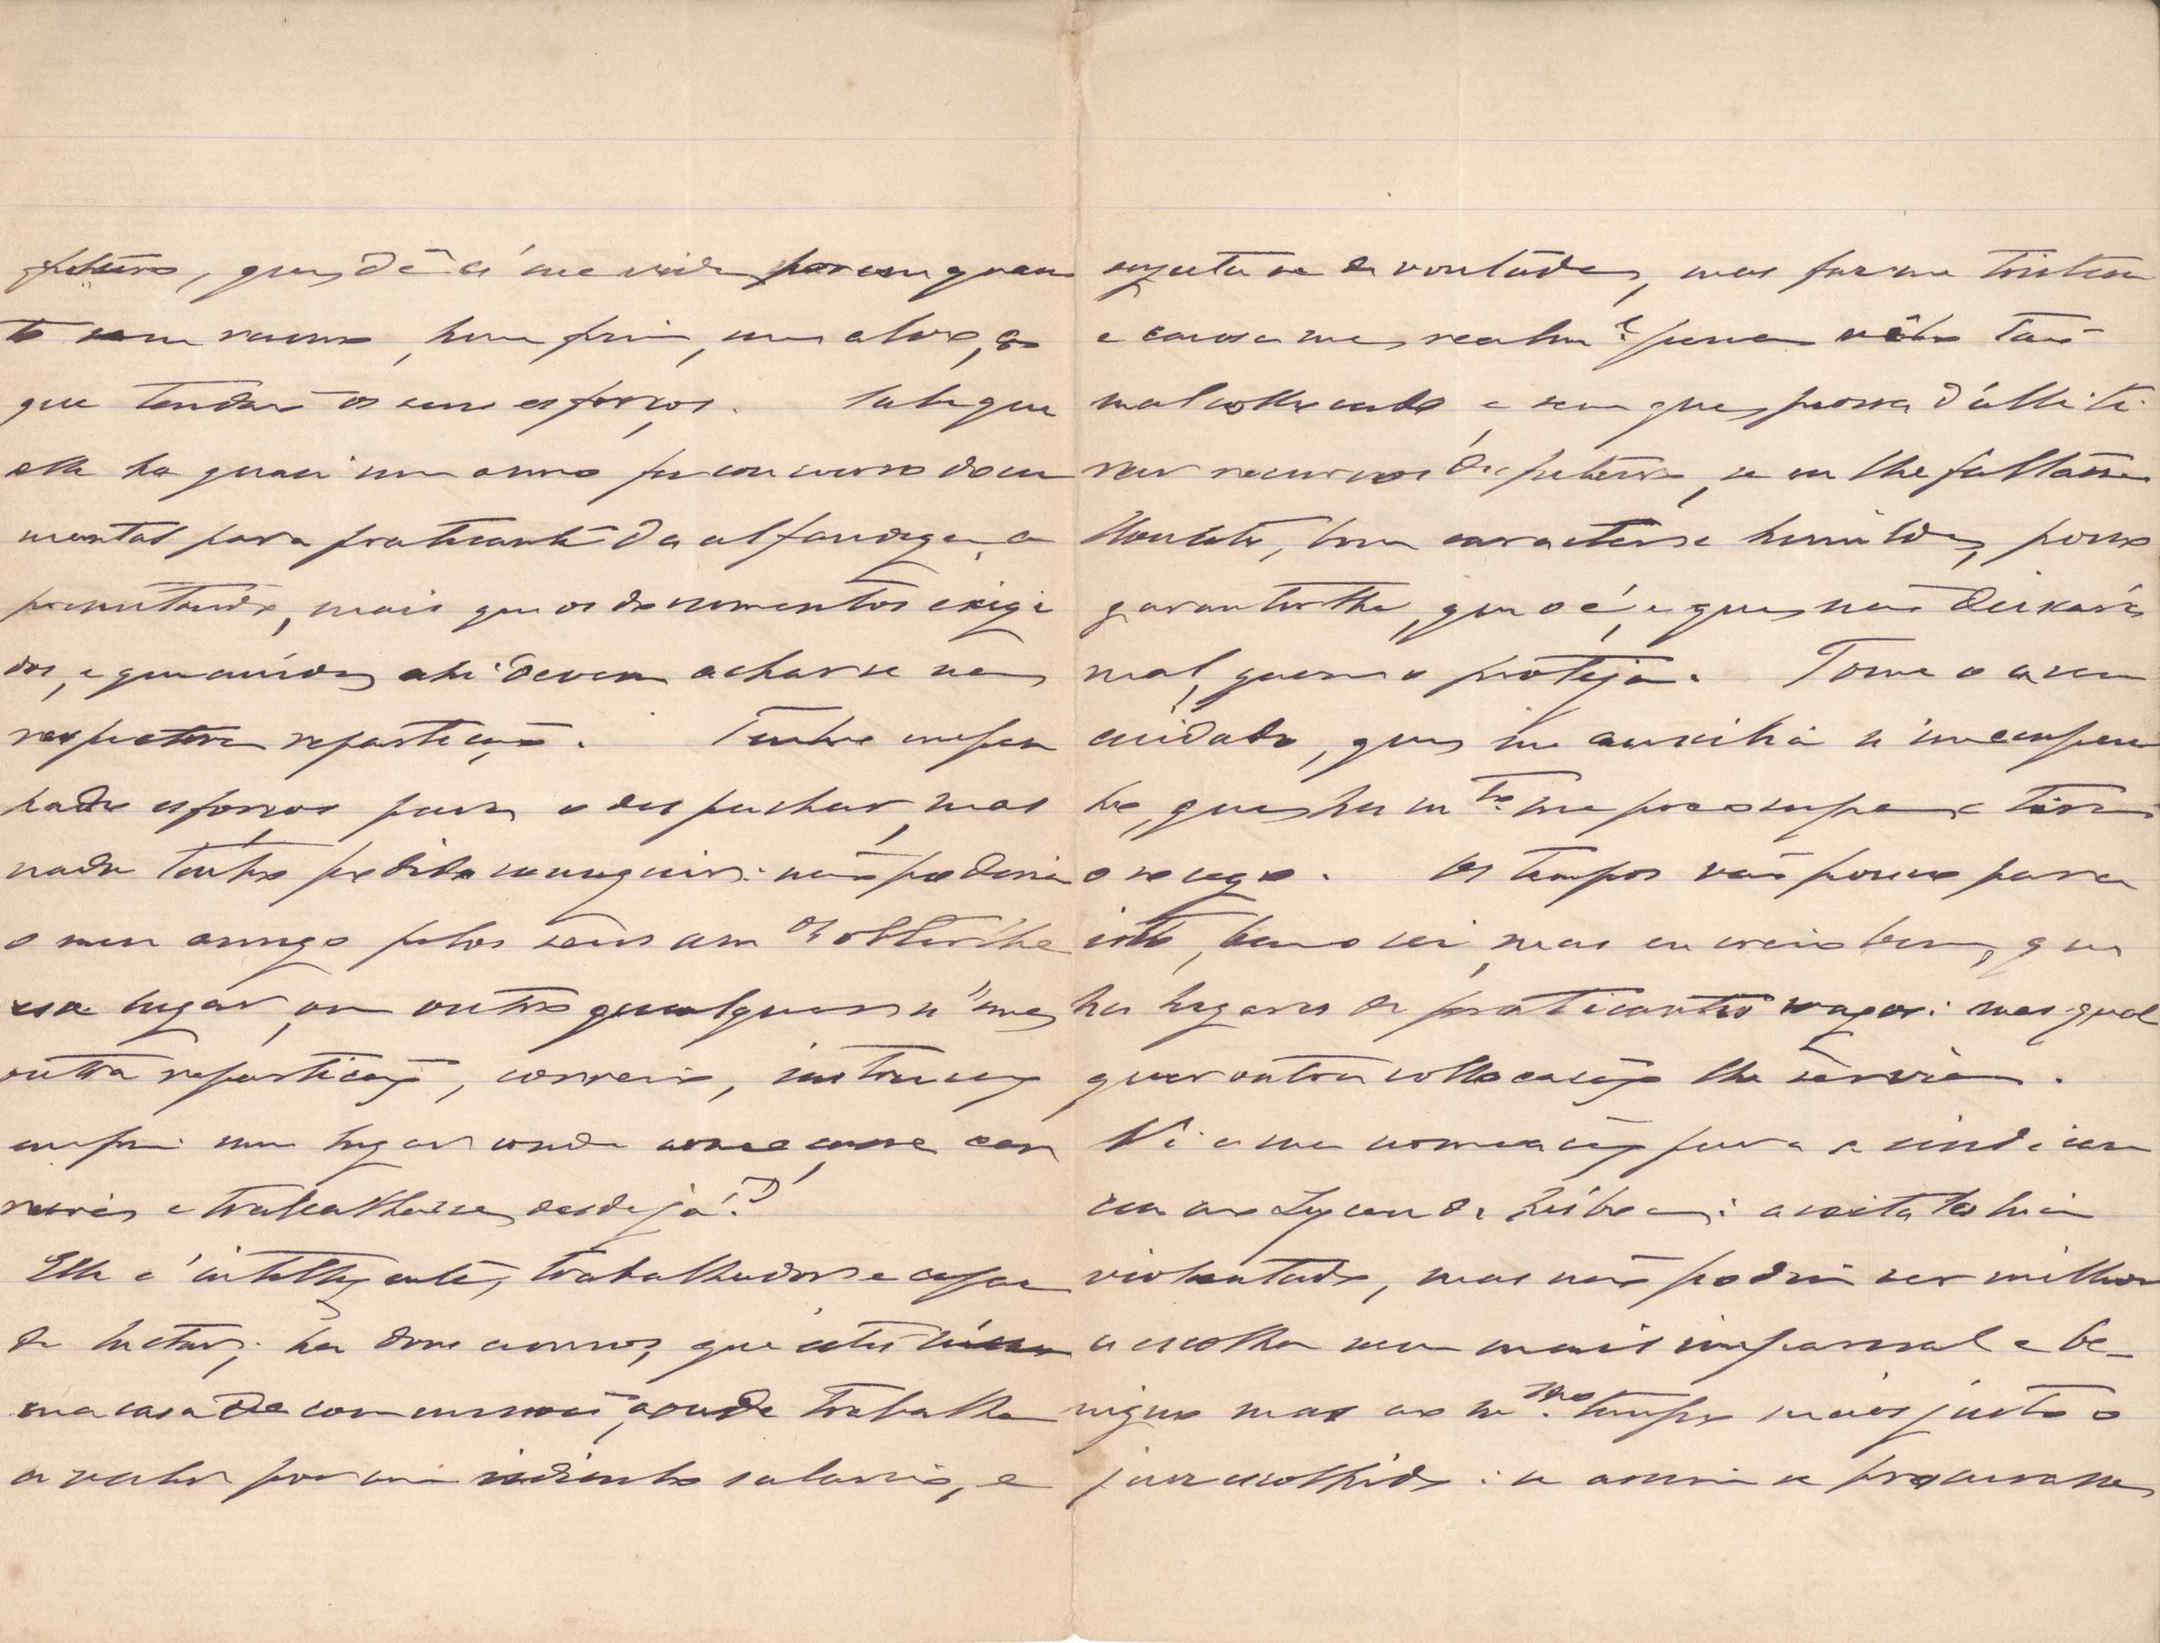 futuro, que dê á sua vida por em quan
to sem rumo, hum fim, um alvo, a
que tendam os seus esforços. Sabe que
elle ha quasi um anno fez concurso docu
mental para praticante da alfandega, a
presentando, mais que os documentos exigi
dos, e que ainda ahi devem achar-se na
respectiva repartição. Tenho empe
nhado esforços para o despachar, mas
nada tenho podido conseguir: não poderia
o meu amigo pelos seus am.os obter-lhe
esse lugar, ou outro qualquer n'uma
outra repartição, correio, instrucção
emfim um lugar onde começasse car
reira e trabalhasse desde já?
Elle é intelligente, trabalhador e capaz
de luctar; ha dous annos, que está n'u
ma casa de commissões, aonde trabalha
a valer por um salario, e
sujeita-se de vontade, mas faz-me tristeza
e causa-me realm.e pena vêl-o tão
mal collocado e sem que possa d'alli ti
rar recursos de futuro, se eu lhe faltasse.
Honesto, bom caracter e humilde, posso
garantir-lhe, que o é, e que não deixará
mal, quem o proteja. Tome o a seu
cuidado, que me auxilia n'um empe
nho, que ha m.to me preoccupa e tira
o socego. Os tempos vão pouco para
isto, bem o sei, mas eu creio bem, que
ha lugares de praticantes vagos: mas qual
quer outra collocação lhe serviria.
Vi a sua nomeação para a sindican
cia ao Lyceu de Lisboa: aceital-o-hia
violentado, mas não podia ser milhor
a escolha nem mais imparcial e be-
nigno mas ao m.mo tempo mais justo o
juiz escolhido: se assim se procurasse